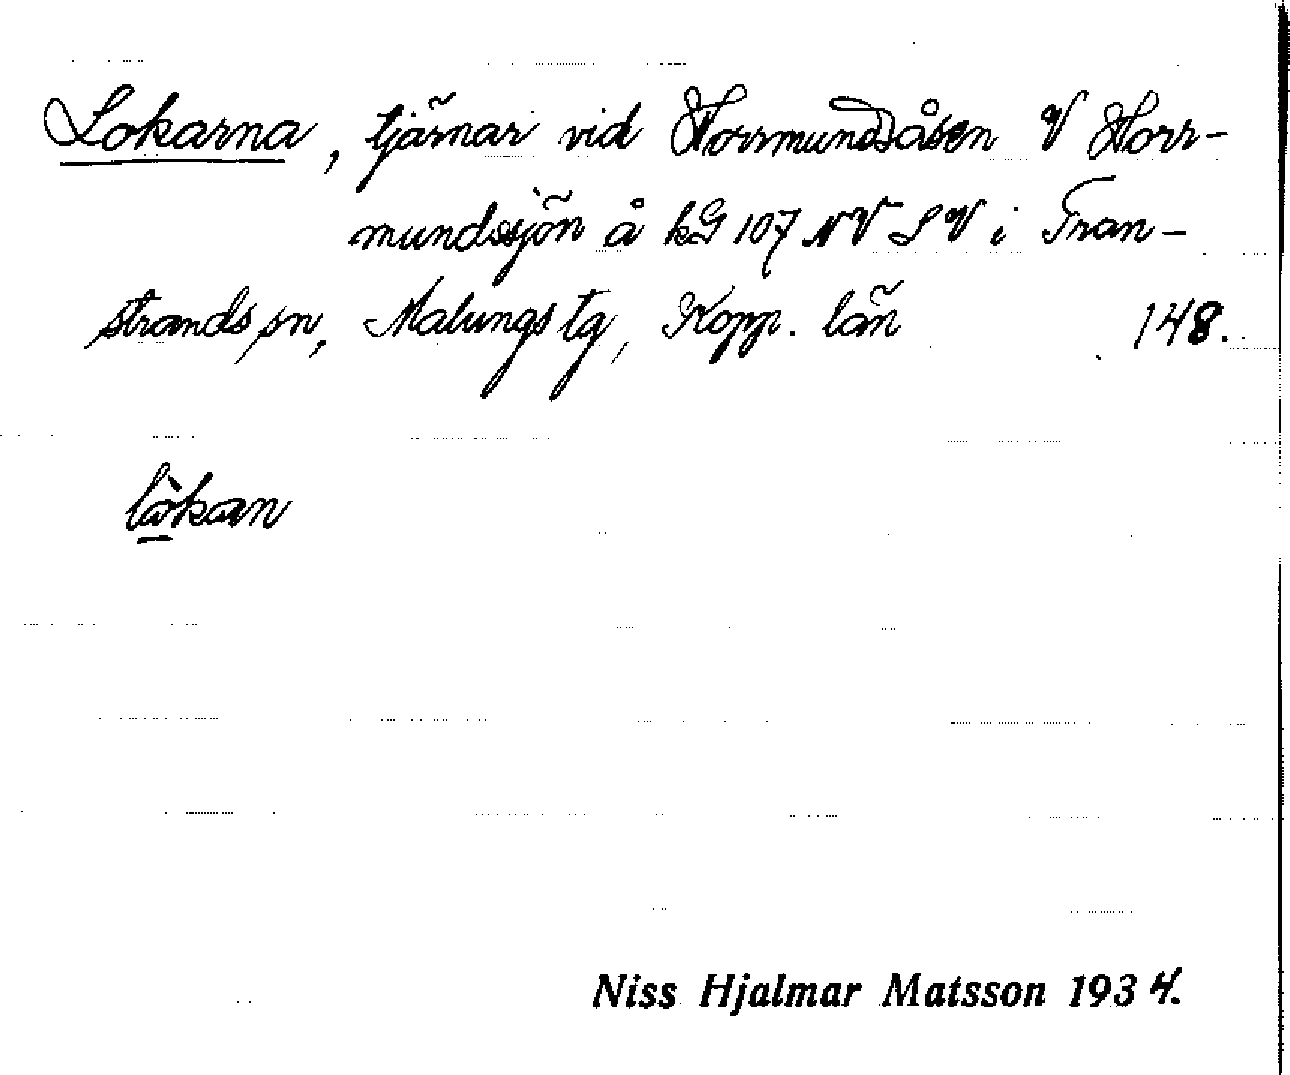 Lokarna, tjärnar vid Horrmundsåsen V Horr-
mundssjön å kG 107 NV SV i Tran-
strands sn, Malungs tg, Kopp. län 148.
lòkan
Niss Hjalmar Matsson 1934.